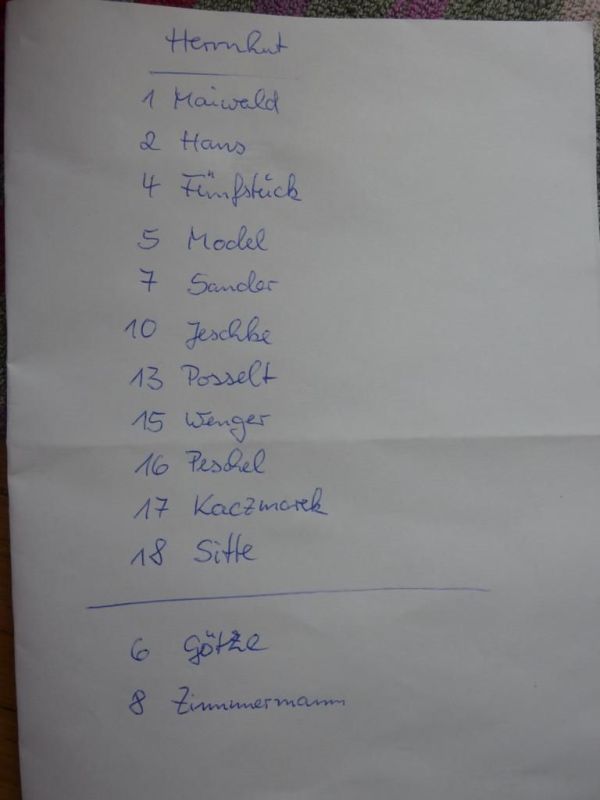 Herrnhut
1 Maiwald
2 Hans
4 Fünfstück
5 Model
7 Sander
10 Jeschke
13 Posselt
15 Wenger
16 Peschel
17 Kaczmarek
18 Sitte
6 Götze
8 Zimmermann